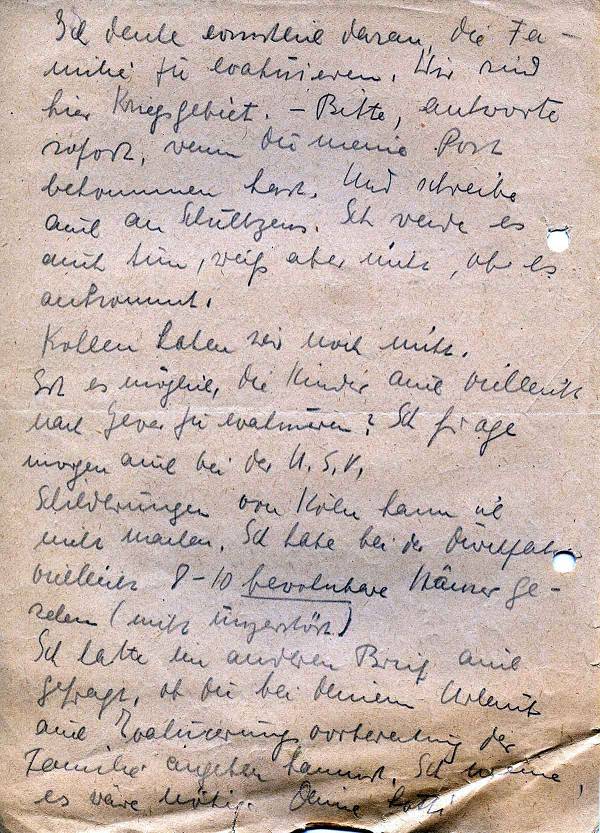 Ich denke ernstlich daran, die Fa-
milie zu evakuieren. Wir sind
hier Kriegsgebiet. – Bitte, antworte
sofort, wenn Du meine Post
bekommen hast. Und schreibe
auch an Schultzens. Ich werde es
auch tun, weiß aber nicht, ob es
ankommt.
Kohlen haben wir noch nicht.
Ist es möglich, die Kinder auch vielleicht
nach Jever zu evakuieren? Ich frage
morgen auch bei der N.S.V.
Schilderungen von Köln kann ich
nicht machen. Ich habe bei der Durchfahrt
vielleicht 8–10 bewohnbare Häuser ge-
sehen (nicht unzerstört)
Ich hatte im anderen Brief auch
gefragt, ob Du bei Deinem Urlaub
auch Evakuierungsvorbereitung der
Familie angeben kannst. Ich meine,
es wäre nötig. Deine